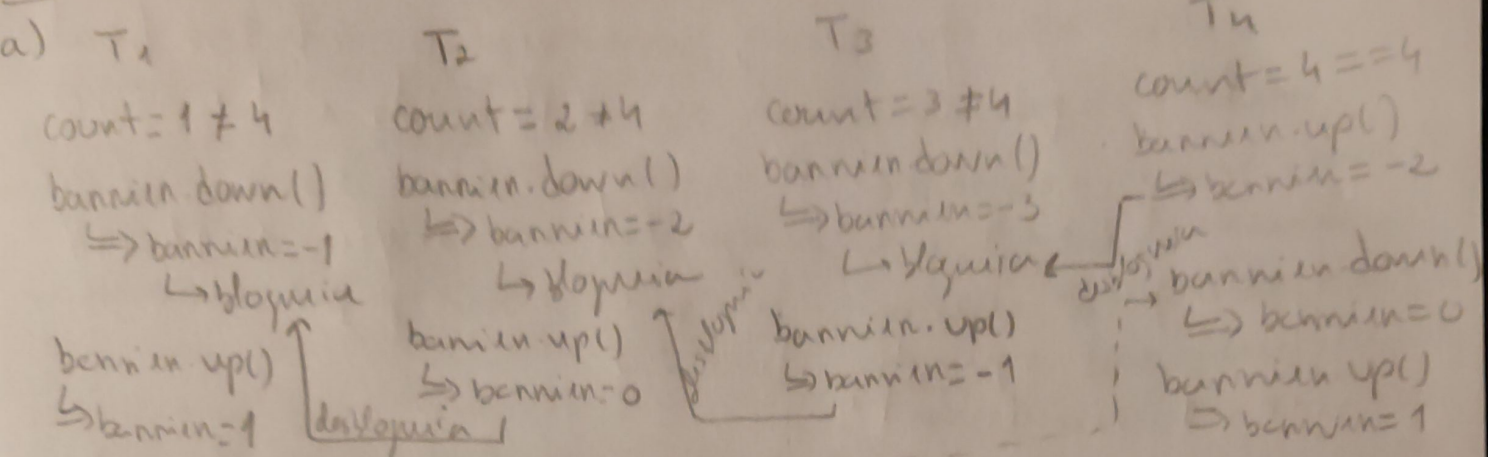 a) T1
count = 1 ≠ 4
barrier.down()
↳ barrier = -1
↳ bloqueia
barrier.up()
↳ barrier = 1
T2
count = 2 ≠ 4
barrier.down()
↳ barrier = -2
↳ bloqueia
barrier.up()
↳ barrier = 0
desbloqueia
T3
count = 3 ≠ 4
barrier.down()
↳ barrier = -3
↳ bloqueia
barrier.up()
↳ barrier = -1
desbloqueia
T4
count = 4 == 4
barrier.up()
↳ barrier = -2
desbloqueia
→ barrier.down()
↳ barrier = 0
barrier.up()
↳ barrier = 1